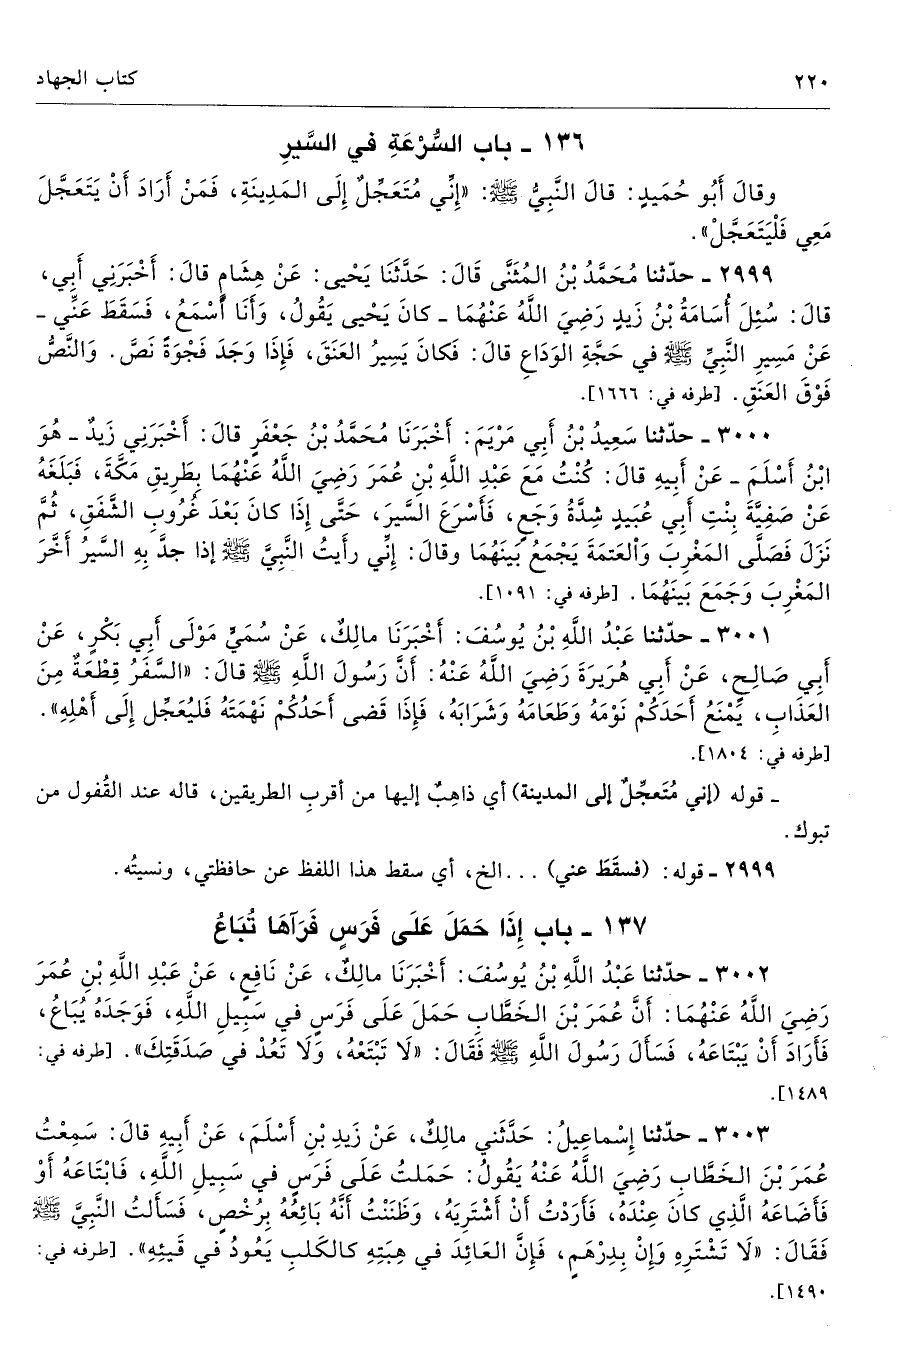 ٢٢٠ كتاب الجهاد
١٣٦ ـ باب السُّرْعَةِ في السَّيرِ
وقالَ أَبُو حُمَيدٍ: قالَ النَّبِيُّ ﷺ: «إِنِّي مُتَعَجِّلٌ إِلَى المَدِينَةِ، فَمَنْ أَرَادَ أَنْ يَتَعَجَّلَ
مَعِي فَلْيَتَعَجَّلْ».
٢٩٩٩ ـ حدّثنا مُحَمَّدُ بْنُ المُثَنَّى قَالَ: حَدَّثَنَا يَحْيى: عَنْ هِشَامٍ قالَ: أَخْبَرَنِي أَبِي،
قالَ: سُئِلَ أُسَامَةُ بْنُ زَيدٍ رَضِيَ اللَّهُ عَنْهُمَا ـ كانَ يَحْيى يَقُولُ، وَأَنَا أَسْمَعُ، فَسَقَطَ عَنِّي ـ
عَنْ مَسِيرِ النَّبِيِّ ﷺ في حَجَّةِ الوَدَاعِ قالَ: فَكانَ يَسِيرُ العَنَقَ، فَإِذَا وَجَدَ فَجْوَةً نَصَّ. وَالنَّصُّ
فَوْقَ العَنَقِ. [طرفه في: ١٦٦٦].
٣٠٠٠ ـ حدّثنا سَعِيدُ بْنُ أَبِي مَرْيَمَ: أَخْبَرَنَا مُحَمَّدُ بْنُ جَعْفَرٍ قالَ: أَخْبَرَنِي زَيدٌ ـ هُوَ
ابْنُ أَسْلَمَ ـ عَنْ أَبِيهِ قالَ: كُنْتُ مَعَ عَبْدِ اللَّهِ بْنِ عُمَرَ رَضِيَ اللَّهُ عَنْهُمَا بِطَرِيقِ مَكَّةَ، فَبَلَغَهُ
عَنْ صَفِيَّةَ بِنْتِ أَبِي عُبَيدٍ شِدَّةُ وَجَعٍ، فَأَسْرَعَ السَّيرَ، حَتَّى إِذَا كانَ بَعْدَ غُرُوبِ الشَّفَقِ، ثُمَّ
نَزَلَ فَصَلَّى المَغْرِبَ وَالعَتَمَةَ يَجْمَعُ بَينَهُمَا وقالَ: إِنِّي رأَيتُ النَّبِيَّ ﷺ إذا جدَّ بِهِ السَّيرُ أَخَّرَ
المَغْرِبَ وَجَمَعَ بَينَهُمَا. [طرفه في: ١٠٩١].
٣٠٠١ ـ حدّثنا عَبْدُ اللَّهِ بْنُ يُوسُفَ: أَخْبَرَنَا مالِكٌ، عَنْ سُمَيٍّ مَوْلَى أَبِي بَكْرٍ، عَنْ
أَبِي صَالِحٍ، عَنْ أَبِي هُرَيرَةَ رَضِيَ اللَّهُ عَنْهُ: أَنَّ رَسُولَ اللَّهِ ﷺ قالَ: «السَّفَرُ قِطْعَةٌ مِنَ
العَذَابِ، يَمْنَعُ أَحَدَكُمْ نَوْمَهُ وَطَعَامَهُ وَشَرَابَهُ، فَإِذَا قَضى أَحَدُكُمْ نَهْمَتَهُ فَليُعَجِّل إِلَى أَهْلِهِ».
[طرفه في: ١٨٠٤].
ـ قوله (إني مُتَعجِّلٌ إلى المدينة) أي ذاهِبٌ إليها من أقربِ الطريقين، قاله عند القُفول من
تبوك.
٢٩٩٩ ـ قوله: (فسقَطَ عني) ...الخ، أي سقط هذا اللفظ عن حافظتي، ونسيتُه.
١٣٧ ـ باب إِذَا حَمَلَ عَلَى فَرَسٍ فَرَآهَا تُبَاعُ
٣٠٠٢ ـ حدّثنا عَبْدُ اللَّهِ بْنُ يُوسُفَ: أَخْبَرَنَا مالِكٌ، عَنْ نَافِعٍ، عَنْ عَبْدِ اللَّهِ بْنِ عُمَرَ
رَضِيَ اللَّهُ عَنْهُمَا: أَنَّ عُمَرَ بْنَ الخَطَّابِ حَمَلَ عَلَى فَرَسٍ في سَبِيلِ اللَّهِ، فَوَجَدَهُ يُبَاعُ،
فَأَرَادَ أَنْ يَبْتَاعَهُ، فَسَأَلَ رَسُولَ اللَّهِ ﷺ فَقَالَ: «لَا تَبْتَعْهُ، وَلَا تَعُدْ في صَدَقَتِكَ». [طرفه في:
١٤٨٩].
٣٠٠٣ ـ حدّثنا إِسْماعِيلُ: حَدَّثَنِي مالِكٌ، عَنْ زَيدِ بْنِ أَسْلَمَ، عَنْ أَبِيهِ قالَ: سَمِعْتُ
عُمَرَ بْنَ الخَطَّابِ رَضِيَ اللَّهُ عَنْهُ يَقُولُ: حَمَلتُ عَلَى فَرَسٍ في سَبِيلِ اللَّهِ، فَابْتَاعَهُ أَوْ
فَأَضَاعَهُ الَّذِي كانَ عِنْدَهُ، فَأَرَدْتُ أَنْ أَشْتَرِيَهُ، وَظَنَنْتُ أَنَّهُ بَائِعُهُ بِرُخْصٍ، فَسَأَلتُ النَّبِيَّ ﷺ
فَقَالَ: «لَا تَشْتَرِهِ وَإِنْ بِدِرْهَمٍ، فَإِنَّ العَائِدَ في هِبَتِهِ كالكَلبِ يَعُودُ في قَيئِهِ». [طرفه في:
١٤٩٠].